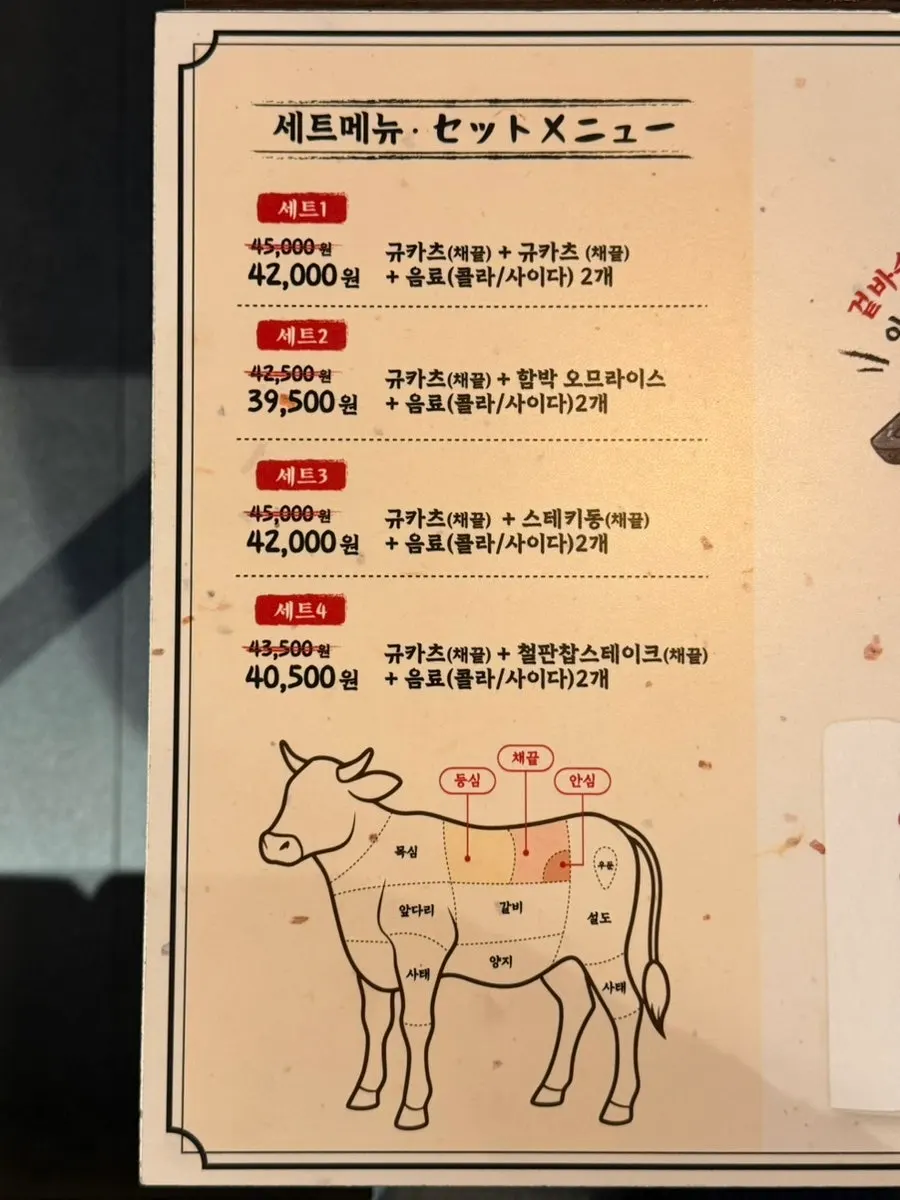 세트메뉴 · セットメニュー
세트1
45,000원
42,000원
규카츠(채끝) + 규카츠 (채끝)
+ 음료(콜라/사이다) 2개
세트2
42,500원
39,500원
규카츠(채끝) + 함박 오므라이스
+ 음료(콜라/사이다)2개
세트3
45,000원
42,000원
규카츠(채끝) + 스테키동(채끝)
+ 음료(콜라/사이다)2개
세트4
43,500원
40,500원
규카츠(채끝) + 철판찹스테이크(채끝)
+ 음료(콜라/사이다)2개
채끝
등심
안심
목심
우둔
앞다리
갈비
설도
양지
사태
사태
겉바